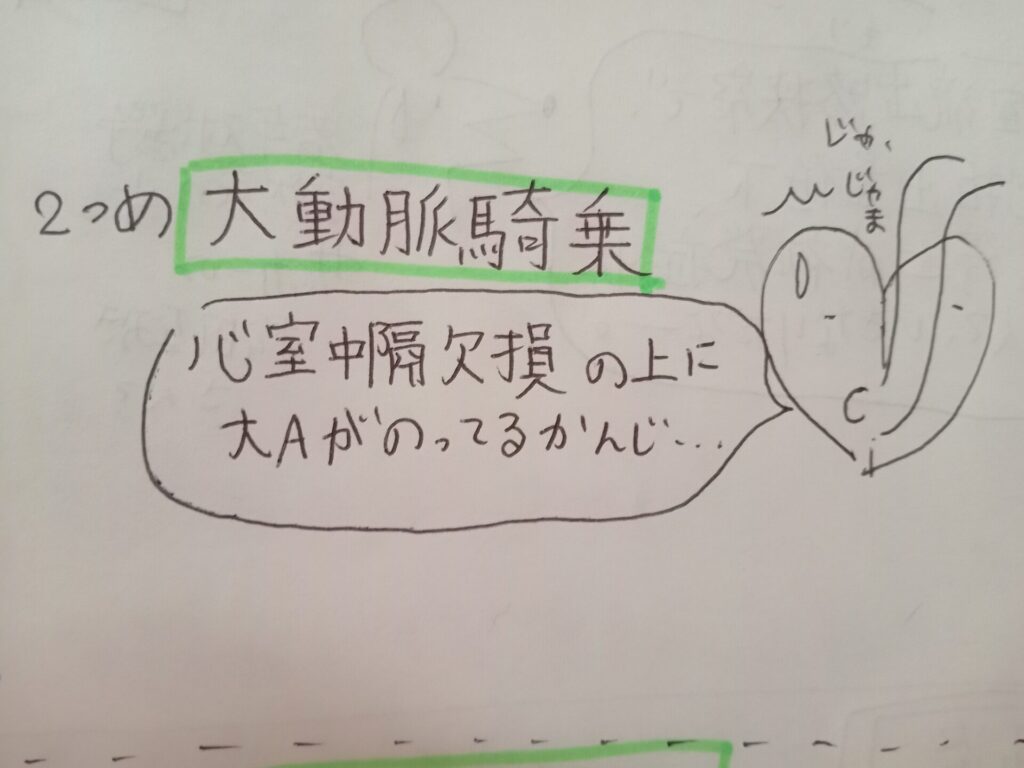 2つめ 大動脈騎乗
心室中隔欠損の上に
大Aがのってるかんじ...
じゃ、
じゃま